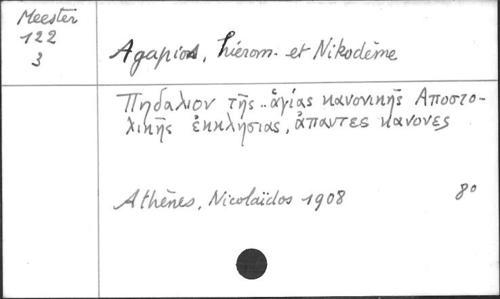 Meester
122
3
Agapios, hiérom. et Nikodème
Πηδαλιον τῆς .. ἁγίας κανονικῆς Αποστο-
λικῆς ἐκκλησιας, ἁπαντες κανονες
Athènes, Nicolaïdos 1908 8°